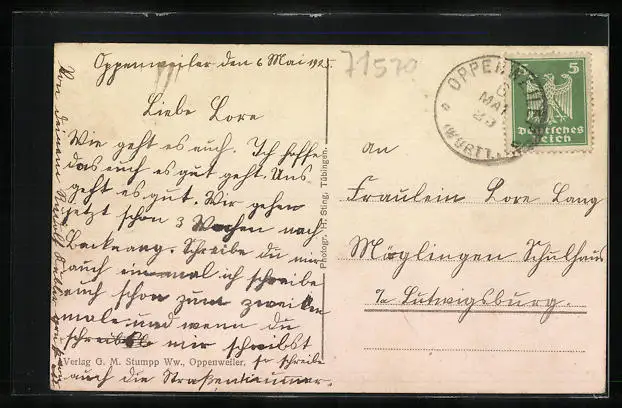 Oppenweiler den 6 Mai 1925.
Liebe Lore
Wie geht es euch. Ich hoffe
das euch es gut geht. Uns
geht es gut. Wir gehen
jetzt schon 3 Wochen nach
Backnang. Schreibe du mir
auch einmal ich schreibe
euch schon zum zweiten
male und wenn du
mir schreibst
so schreibe
auch die Straßennummer.
Von deinem
Verlag G. M. Stumpp Ww., Oppenweiler.
Photogr. H. Sting, Tübingen.
71570
OPPENWEILER
6
MAI
(WÜRTT.)
5
Deutsches
Reich
An
Fräulein Lore Lang
Möglingen Schulhaus
Lutwigsburg.